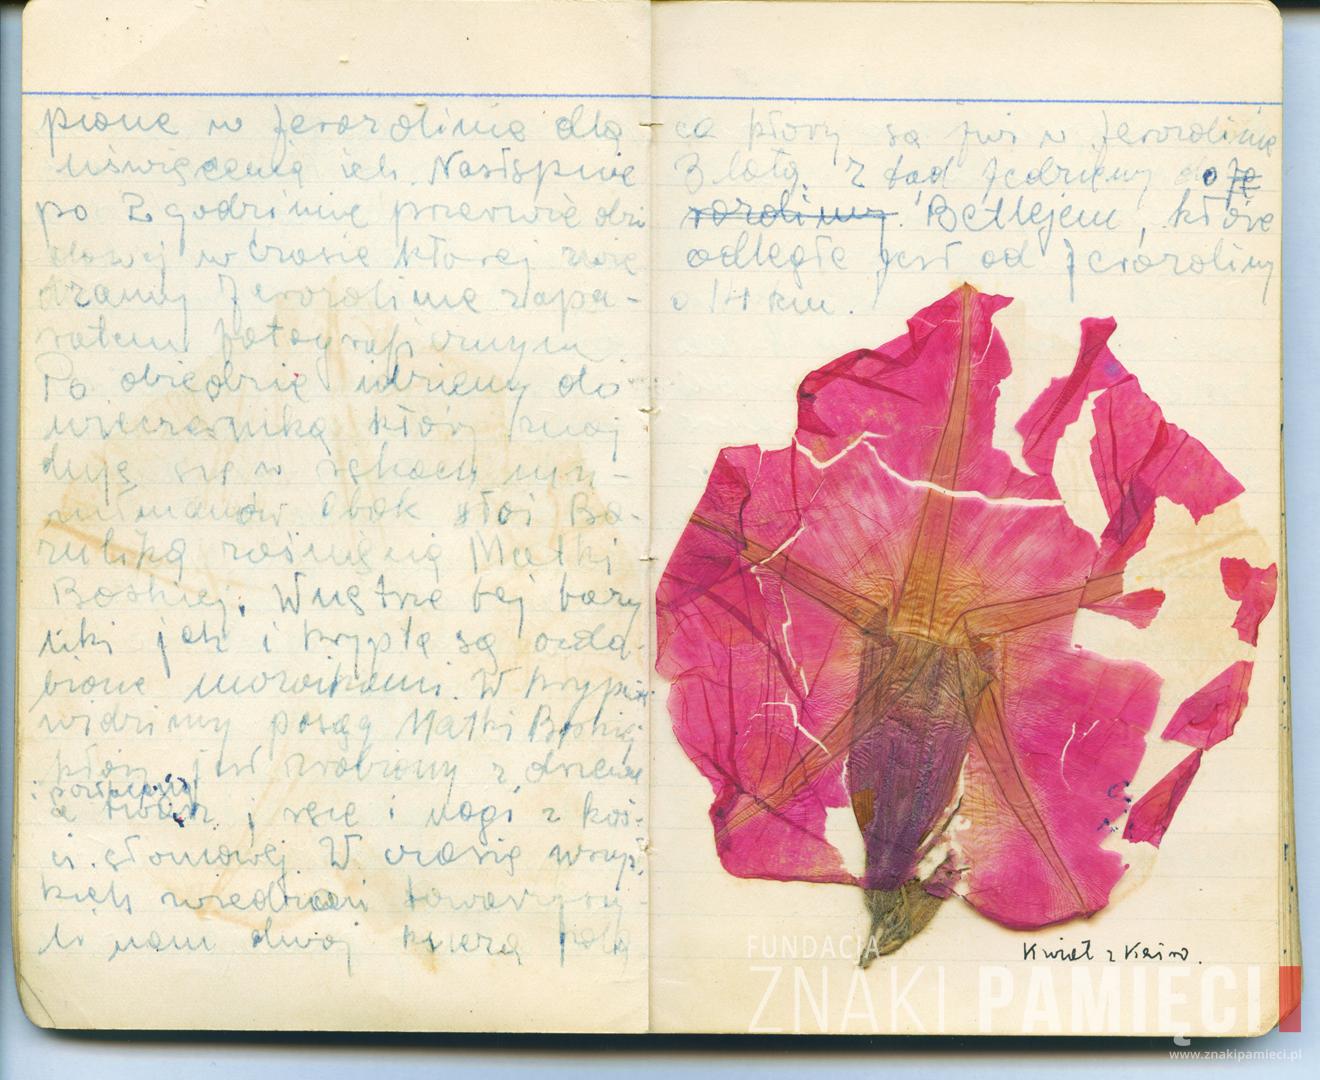 pione w Jerozolimie dla
uświęcenia ich. Następnie
po 2 godzinnie przerwie obia
dowej w czasie której zwie
dzamy Jerozolimę z apa-
ratem fotograficznym
Po obiedzie idziemy do
wieczernika który znaj
duje się w rękach mu-
zułmanów Obok stoi Ba-
zylika zaśnięcia Matki
Boskiej. Wnętrze tej bazy
liki jak i krypta są ozdo-
bione mozaikami. W krypcie
widzimy posąg Matki Boskiej
który jest zrobiony z drzewa
a twarz, ręce i nogi z koś-
ci słoniowej W czasie wszyst
kich wiedzań towarzyszy-
li nam dwaj księża pola
cy którzy są już w Jerozolimie
3 lata. Z tąd jedziemy do Je
rozolimy. Betlejem, które
odległe jest od Jerozolimy
o 14 km.
Kwiat z Kairo.
FUNDACJA
ZNAKI PAMIĘCI
www.znakipamieci.pl